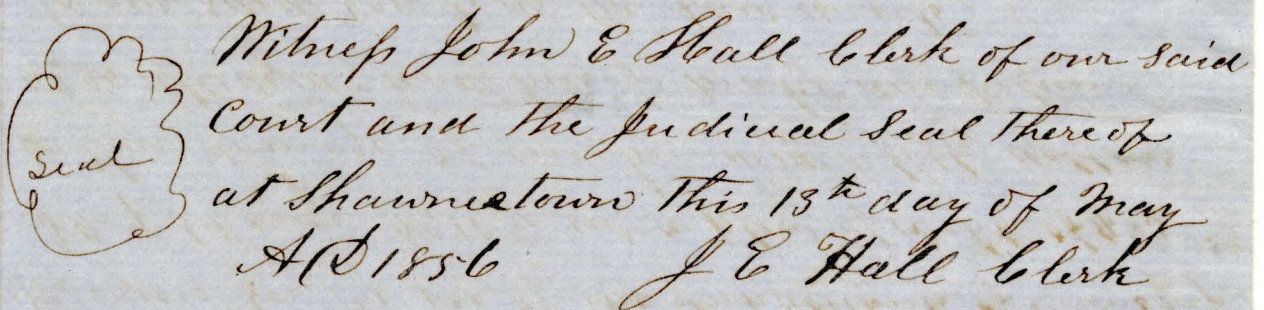 Witness John E Hall Clerk of our said
Court and the Judicial Seal thereof
seal
at Shawneetown this 13th day of May
AD 1856 J E Hall Clerk